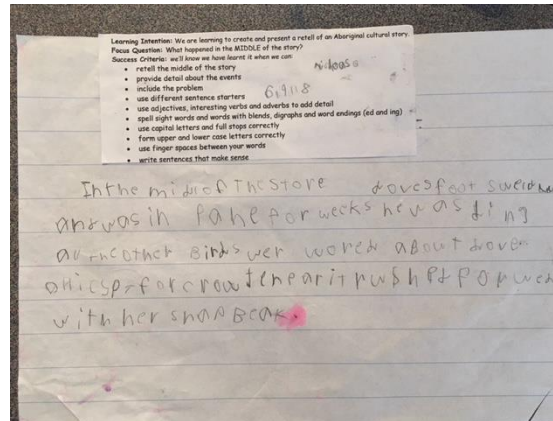 Learning Intention: We are learning to create and present a retell of an Aboriginal cultural story.
Focus Question: What happened in the MIDDLE of the story?
Success Criteria: we'll know we have learnt it when we can:
• retell the middle of the story
• provide detail about the events
• include the problem
• use different sentence starters
• use adjectives, interesting verbs and adverbs to add detail
• spell sight words and words with blends, digraphs and word endings (ed and ing)
• use capital letters and full stops correctly
• form upper and lower case letters correctly
• use finger spaces between your words
• write sentences that make sense
In the midle of The Store doves foot
and was in pane for weeks he was ding
other Birds wer wored about dove
for
with her snap Beak.